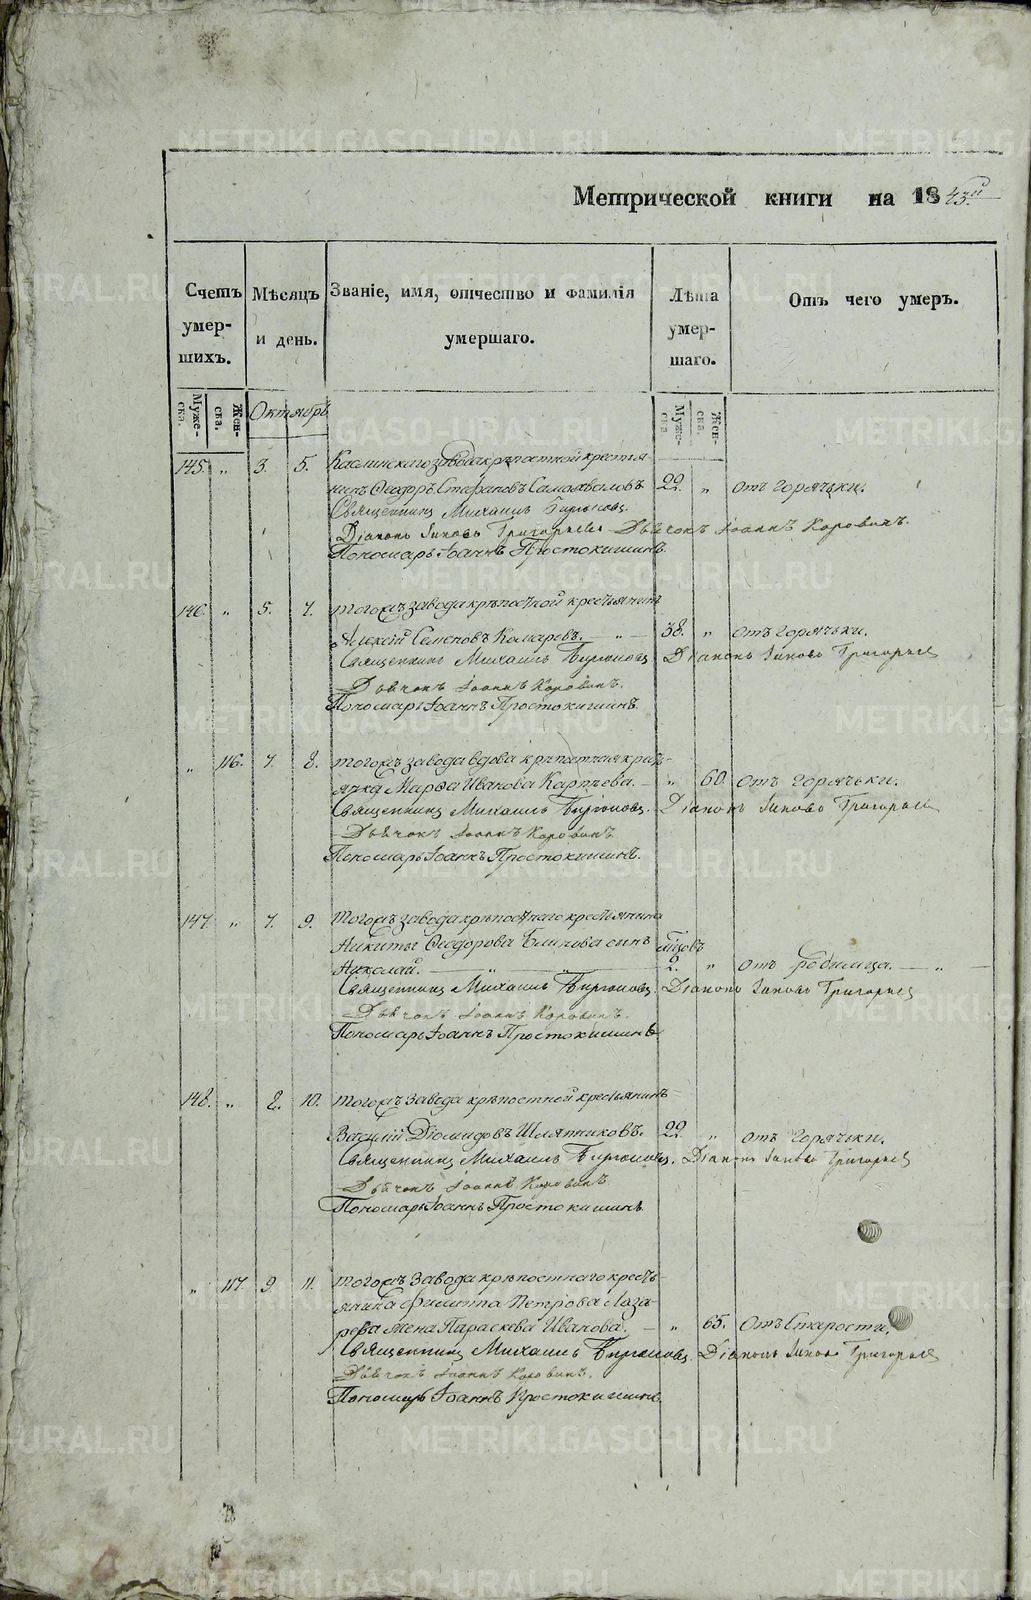 Метрической книги на 1843й
Счетъ умер-шихъ.
Мѣсяцъ и день.
Званіе, имя, отчество и фамилія умершаго.
Лѣта умер-шаго.
Отъ чего умеръ.
Муже-ска.
Жен-ска.
Октябрь
Муже-ска
Жен-ска.
145. „ 3. 5. Каслинскаго завода крѣпостной крестья-
нинъ Ѳеодоръ Стефановъ Самохваловъ 22. „ отъ горячьки.
Священникъ Михаилъ Бирюковъ
Діаконъ Іаковъ Григорьевъ Дьячокъ Іоаннъ Коровинъ.
Пономарь Іоаннъ Простокишинъ.
146. „ 5. 7. тогожъ завода крѣпостной крестьянинъ
Алексій Семеновъ Комаревъ. — „ — 38. „ отъ горячьки.
Священникъ Михаилъ Бирюковъ Діаконъ Іаковъ Григорьевъ
Дьячокъ Іоаннъ Коровинъ.
Пономарь Іоаннъ Простокишинъ.
„ 116. 7. 8. тогожъ завода вдова крѣпостная крестьянка
Марѳа Иванова Карпѣева. — „ 60. отъ горячьки.
Священникъ Михаилъ Бирюковъ. Діаконъ Іаковъ Григорьевъ
Дьячокъ Іоаннъ Коровинъ
Пономарь Іоаннъ Простокишинъ.
147. „ 7. 9. тогожъ завода крѣпостнаго крестьянина
Никиты Ѳеодорова Блинова сынъ мѣцовъ
Николай. — „ — „ — 2. „ отъ родимца. — „ —
Священникъ Михаилъ Бирюковъ Діаконъ Іаковъ Григорьевъ
Дьячокъ Іоаннъ Коровинъ.
Пономарь Іоаннъ Простокишинъ
148. „ 8. 10. тогожъ завода крѣпостной крестьянинъ
Василій Діомидовъ Шляпниковъ. 22 „ отъ горячьки.
Священникъ Михаилъ Бирюковъ. Діаконъ Іаковъ Григорьевъ
Дьячокъ Іоаннъ Коровинъ
Пономарь Іоаннъ Простокишинъ
„ 117. 9. 11. тогожъ завода крѣпостнаго кресть-
янина Филиппа Петрова Лаза-
рева жена Параскева Иванова. — „ 65. Отъ старости.
Священникъ Михаилъ Бирюковъ. Діаконъ Іаковъ Григорьевъ
Дьячокъ Іоаннъ Коровинъ.
Пономарь Іоаннъ Простокишинъ.
METRIKI.GASO-URAL.RU